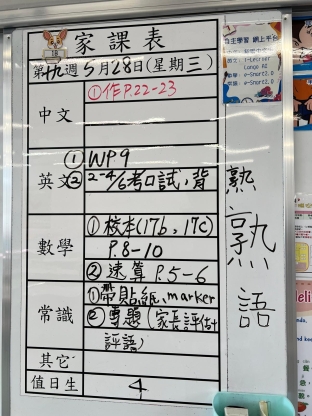 家課表
第十九週5月28日(星期三)
中文
①作P.22-23
英文
①WP9
②2-4/6考口試,背
數學
①校本(17b,17c)
P.8-10
②速算 P.5-6
常識
①帶貼紙,marker
②專題(家長評估+
評語)
其它
值日生
4
熟
熟
語
自主學習 網上平台